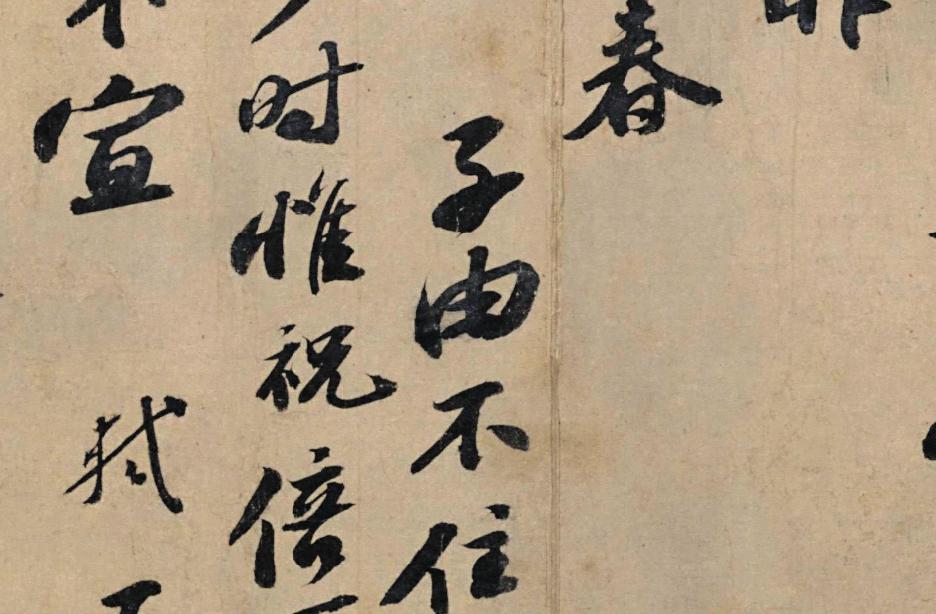 春
子由不住
时惟祝倍
不宣 轼